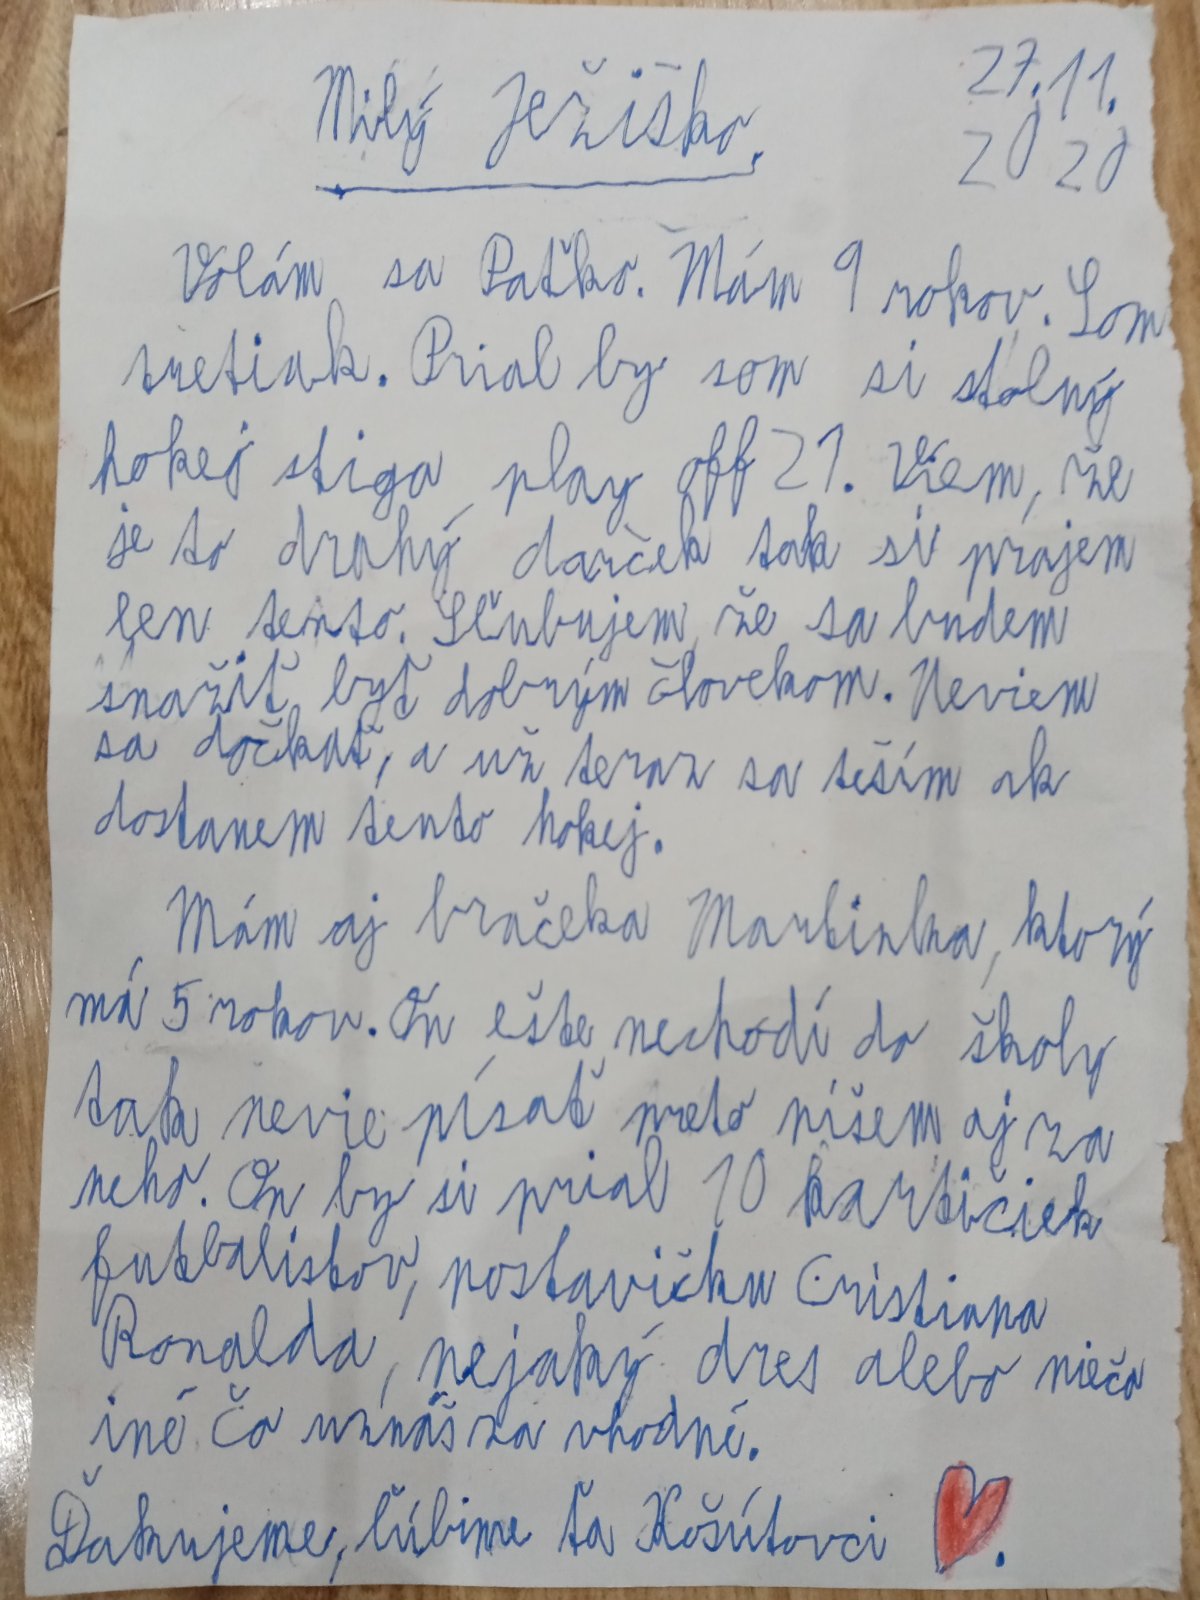 27.11.
2020
Milý Ježiško,
Volám sa Paťko. Mám 9 rokov. Som
tretiak. Prial by som si stolný
hokej stiga play off 21. Viem, že
je to drahý darček tak si prajem
len tento. Sľubujem, že sa budem
snažiť byť dobrým človekom. Neviem
sa dočkať, a už teraz sa teším ak
dostanem tento hokej.
Mám aj bračeka Martinka, ktorý
má 5 rokov. On ešte nechodí do školy
tak nevie písať preto píšem aj za
neho. On by si prial 10 kartičiek
futbalistov, postavičku Cristiana
Ronalda, nejaký dres alebo niečo
iné čo uznáš za vhodné.
Ďakujeme, ľúbime ťa Košútovci.